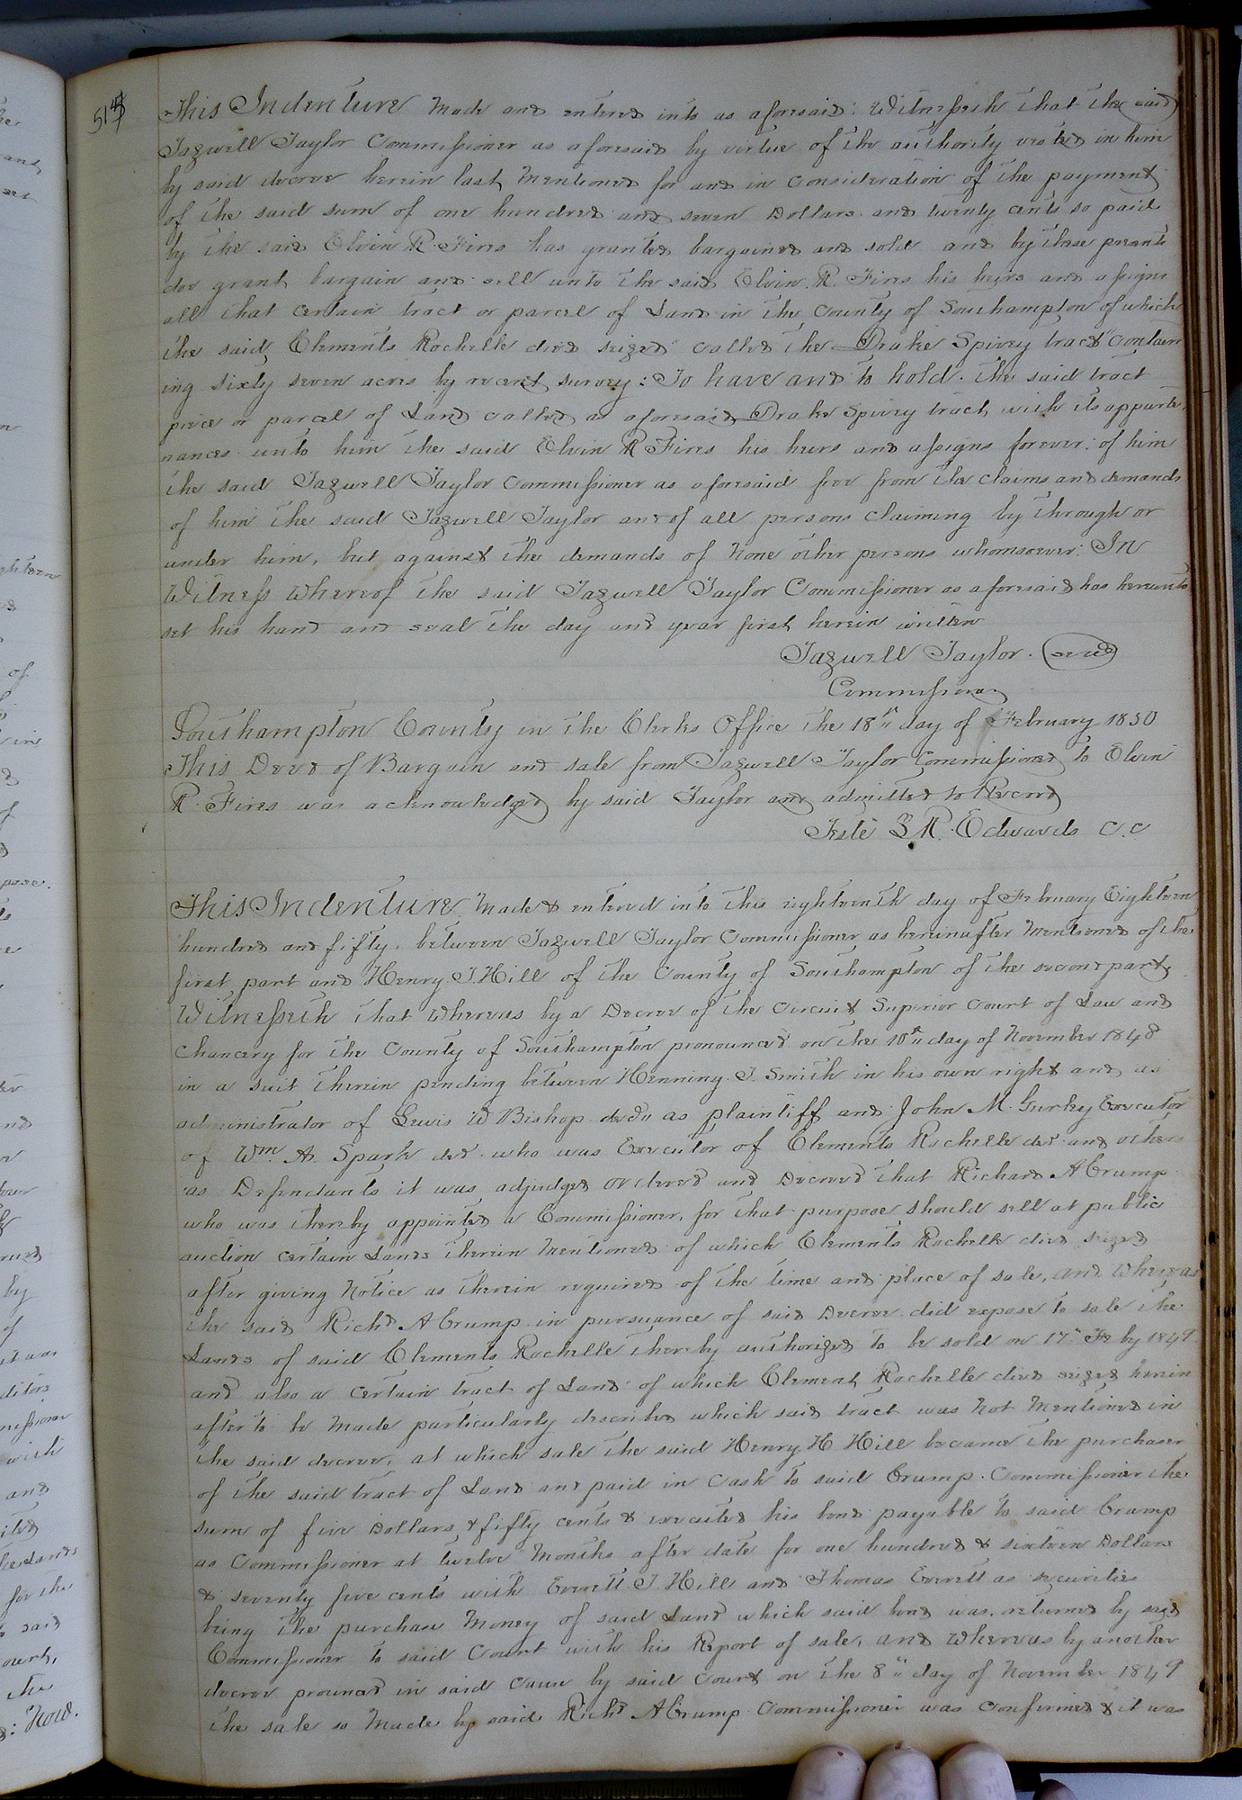 514
This Indenture Made and entered into as aforesaid: Witnesseth that the said
Tazwell Taylor Commissioner as aforesaid by virtue of the authority vested in him
by said decree herein last Mentioned for and in consideration of the payment
of the said sum of one hundred and seven Dollars and twenty cents so paid
by the said Elvin R Fires has granted bargained and sold and by these presents
doe grant bargain and sell unto the said Elvin R. Fires his heirs and assigns
all that certain tract or parcel of Land in the County of Southampton of which
the said Clements Rochelle died seized called the Drake Spivey tract contain
ing sixty seven acres by recent survey: To have and to hold. the said tract
piece or parcel of Land called as aforesaid Drake Spivey tract with its appurte
nances unto him the said Elvin R Fires his heirs and assigns forever: of him
the said Tazwell Taylor Commissioner as aforesaid free from the claims and demands
of him the said Tazwell Taylor and of all persons claiming by through or
under him, but against the demands of None other persons whomsoever: In
Witness Whereof the said Tazwell Taylor Commissioner as aforesaid has hereunto
set his hand and seal the day and year first herein written
Tazwell Taylor. (seal)
Commissioner
Southampton County in the Clerks Office the 18th day of February 1850
This Deed of Bargain and sale from Tazwell Taylor Commissioner to Elvin
R. Fires was acknowledged by said Taylor and admitted to Record
Teste L R. Edwards C.C
This Indenture, Made & entered into this eighteenth day of February Eighteen
hundred and fifty. between Tazwell Taylor Commissioner as hereinafter Mentioned of the
first part and Henry J. Hill of the County of Southampton of the second part,
Witnesseth that Whereas by a Decree of the Circuit Superior Court of Law and
Chancery for the County of Southampton pronounced on the 10th day of November 1848
in a suit therein pending between Henning J. Smith in his own right and as
administrator of Lewis W Bishop decd as plaintiff and John M. Gurley Executor
of Wm. A. Spark decd. who was Executor of Clements Rochelle decd and others
as Defendants it was adjudged ordered and Decreed that Richard A Crump
who was thereby appointed a Commissioner, for that purpose should sell at public
auction certain Lands therein Mentioned of which Clements Rochelle died seized
after giving Notice as therein required of the time and place of sale, and Whereas
the said Richd A Crump in pursuance of said Decree did expose to sale the
Lands of said Clements Rochelle thereby authorized to be sold on 17th Feby 1849
and also a certain tract of Land of which Clement Rochelle died seized herein
after to be Made particularly described which said tract was Not Mentioned in
the said decree, at which sale the said Henry H Hill became the purchaser
of the said tract of Land and paid in Cash to said Crump Commissioner the
sum of five Dollars & fifty cents & executed his bond payable to said Crump
as Commissioner at twelve Months after date for one hundred & sixteen Dollars
& seventy five cents with Everett J. Hill and Thomas Everett as securities
being the purchase Money of said Land which said bond was returned by said
Commissioner to said Court with his Report of sale, and Whereas by another
decree pronounced in said cause by said Court on the 8th day of November 1849
the sale so Made by said Richd A Crump Commissioner was confirmed & it was